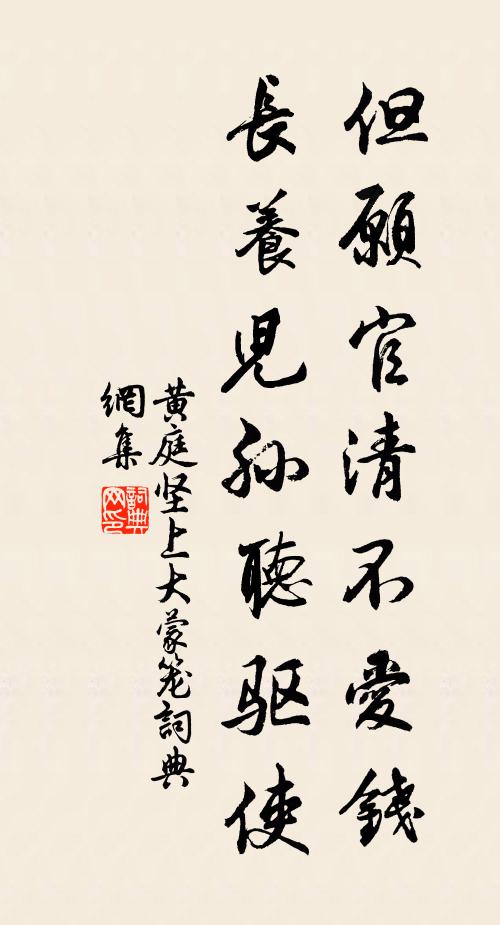 但願官清不愛錢
長養兒孫聽驅使
黄庭坚上大蒙笼詞典
網集
詞典
网印